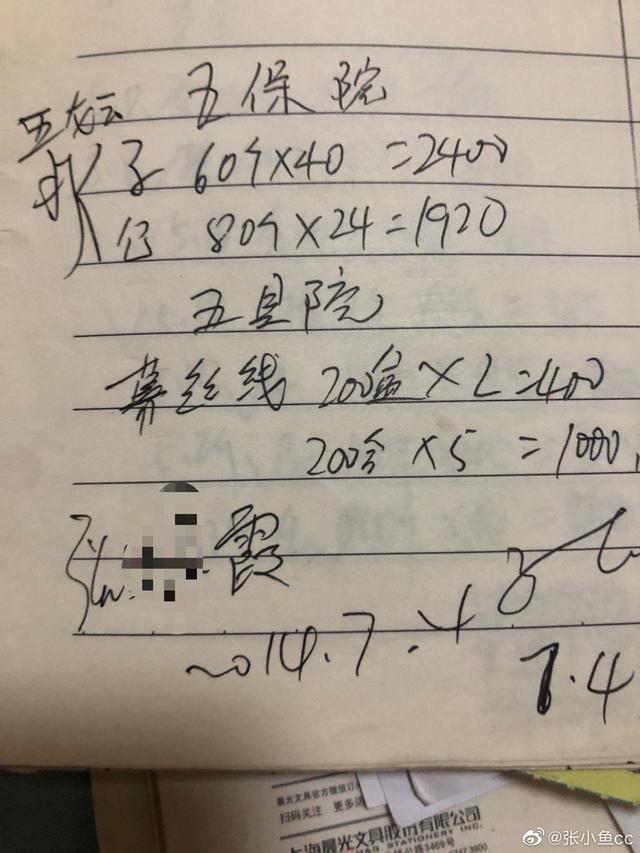 五保院
子 60个×40 =2400
公 80个×24=1920
五县院
慕丝线 200盒×2=400
200盒×5 =1000
张 霞
2014.7.4
7.4
晨光文具官方微信订
扫码关注 更多
上海晨光文具股份有限公司
STATIONERY INC.
公路3469号
@张小鱼cc